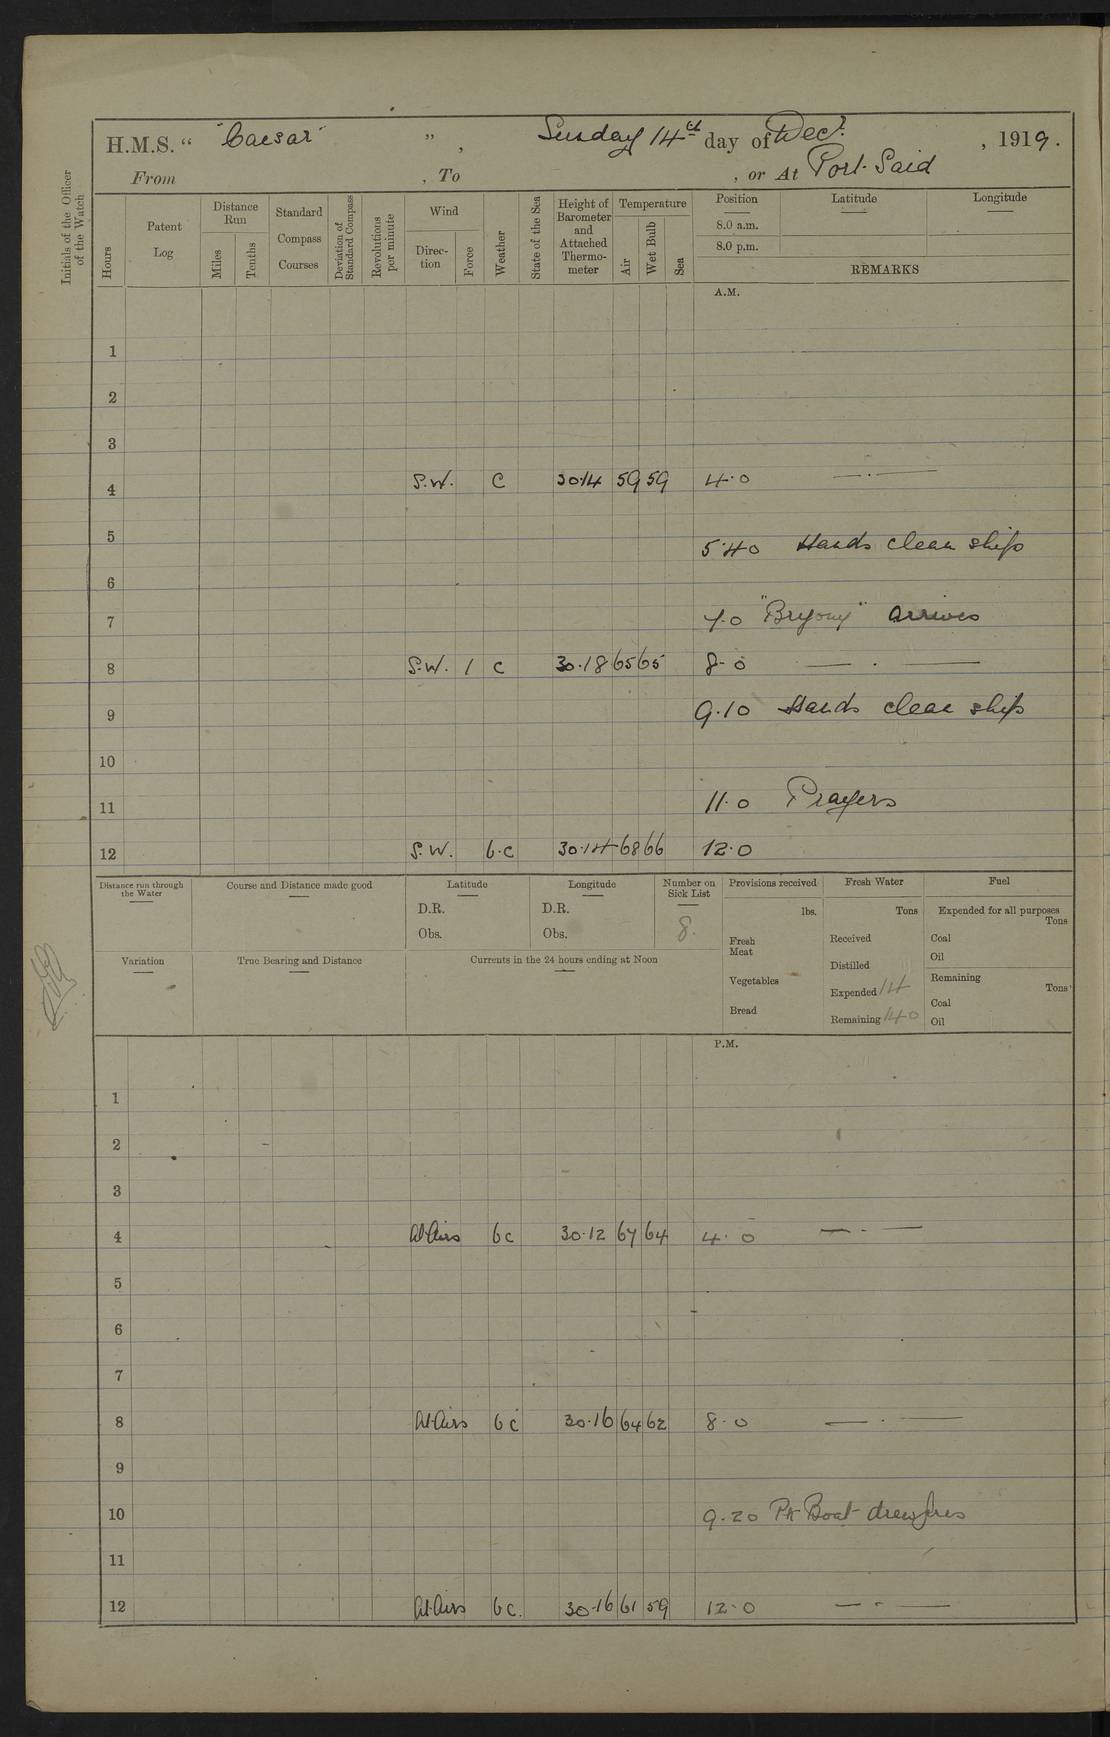 H.M.S. " "Caesar" ", Sunday 14th day of Decr. , 1919.
From , To , or At Port Said
Initials of the Officer of the Watch
Hours
Patent Log
Distance Run
Miles
Tenths
Standard Compass Courses
Deviation of Standard Compass
Revolutions per minute
Wind
Direction
Force
Weather
State of the Sea
Height of Barometer and Attached Thermometer
Temperature
Air
Wet Bulb
Sea
Position Latitude Longitude
8.0 a.m.
8.0 p.m.
REMARKS
A.M.
1
2
3
4 S.W. C 30.14 59 59 4.0 — . —
5 5.40 Hands clean ship
6
7 7.0 "Bryony" arrives
8 S.W. 1 C 30.18 65 65 8.0 — . —
9 9.10 Hands clean ship
10
11 11.0 Prayers
12 S.W. b.c 30.14 68 66 12.0
Distance run through the Water
Course and Distance made good
Latitude
D.R.
Obs.
Longitude
D.R.
Obs.
Number on Sick List
8.
Provisions received
lbs.
Fresh Meat
Vegetables
Bread
Fresh Water
Tons
Received
Distilled
Expended 14
Remaining 140
Fuel
Expended for all purposes
Tons
Coal
Oil
Remaining
Tons
Coal
Oil
Variation
True Bearing and Distance
Currents in the 24 hours ending at Noon
P.M.
1
2
3
4 Al. Airs bc 30.12 67 64 4.0 — . —
5
6
7
8 Al. Airs bc 30.16 64 62 8.0 — . —
9
10 9.20 Pt Boat drew fires
11
12 Al. Airs bc. 30.16 61 59 12.0 — . —